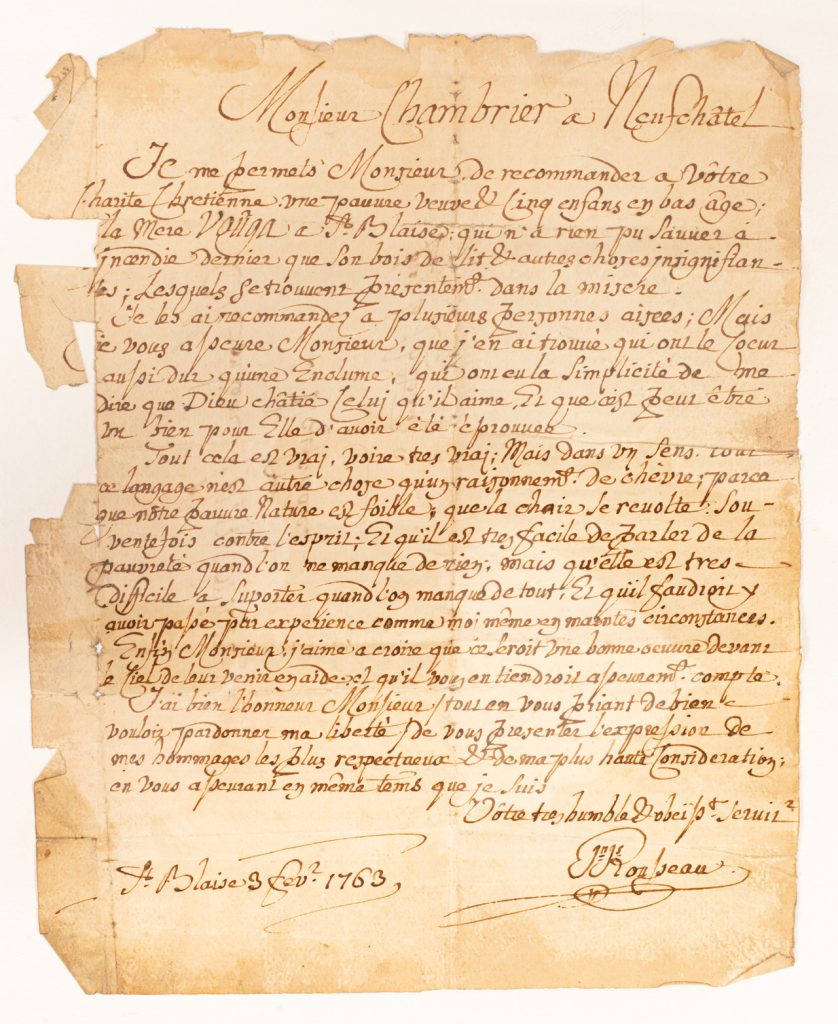 Monsieur Chambrier a Neufchâtel
Je me permets Monsieur, de recommander a vôtre
Charite Chretienne une pauvre veuve & Cinq enfans en bas âge;
la Mere VOÜGA a St. Blaise; qui n'a rien pu sauver à
incendie dernier que son bois de lit & autres choses insignifian-
tes; Lesquels se trouvent presentemt. dans la misere.
Je les ai recommandez à plusieurs personnes aisees; Mais
je vous asseure Monsieur, que j'en ai trouvé qui ont le Coeur
aussi dur qu'une Enclume, qui ont eu la simplicité de me
dire que Dieu châtie Celuj qu'il aime, Et que c'est peut être
un bien pour Elle d'avoir été éprouvee.
Tout cela est vraj, voire tres vraj; Mais dans un sens tout
ce langage n'est autre chose qu'un raisonnemt. de chèvre; parce
que nôtre pauvre Nature est foible; que la chair se revolte sou-
ventefois contre l'esprit; Et qu'il est tres facile de parler de la
pauvreté quand l'on ne manque de rien, mais qu'elle est tres
difficile a suporter quand l'on manque de tout, Et qu'il faudroit y
avoir passé par experience comme moi même en maintes circonstances.
Enfin Monsieur, j'aime a croire que ce seroit une bonne oeuvre devant
le Ciel de leur venir en aide & qu'il vous en tiendroit asseuremt. compte.
J'ai bien l'honneur Monsieur / tout en vous priant de bien
vouloir pardonner ma liberté / de vous presenter l'expression de
mes hommages les plus respectueux & de ma plus haute Consideration;
en vous asseurant en même tems que je suis
Vôtre tres humble & obeisst. servir.
Jn Js Rousseau
St. Blaise 3 fevr. 1763